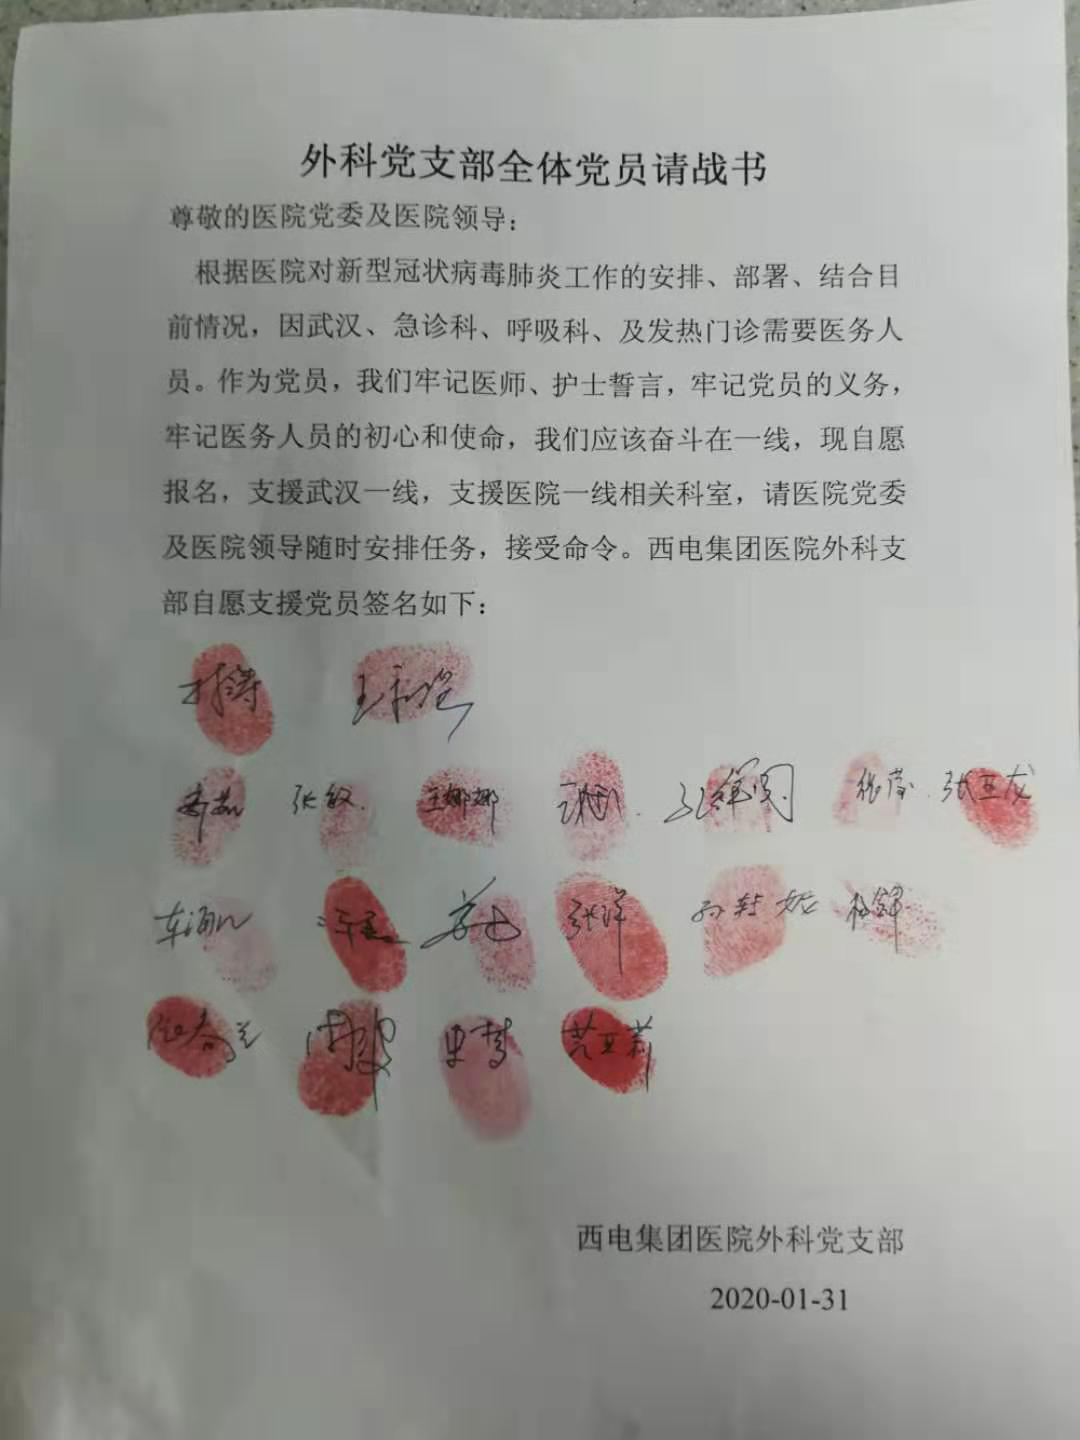 外科党支部全体党员请战书
尊敬的医院党委及医院领导：
根据医院对新型冠状病毒肺炎工作的安排、部署、结合目
前情况，因武汉、急诊科、呼吸科、及发热门诊需要医务人
员。作为党员，我们牢记医师、护士誓言，牢记党员的义务，
牢记医务人员的初心和使命，我们应该奋斗在一线，现自愿
报名，支援武汉一线，支援医院一线相关科室，请医院党委
及医院领导随时安排任务，接受命令。西电集团医院外科支
部自愿支援党员签名如下：
张敏 王娜娜 张莹 张亚龙
张洋
史梦 党亚莉
西电集团医院外科党支部
2020-01-31